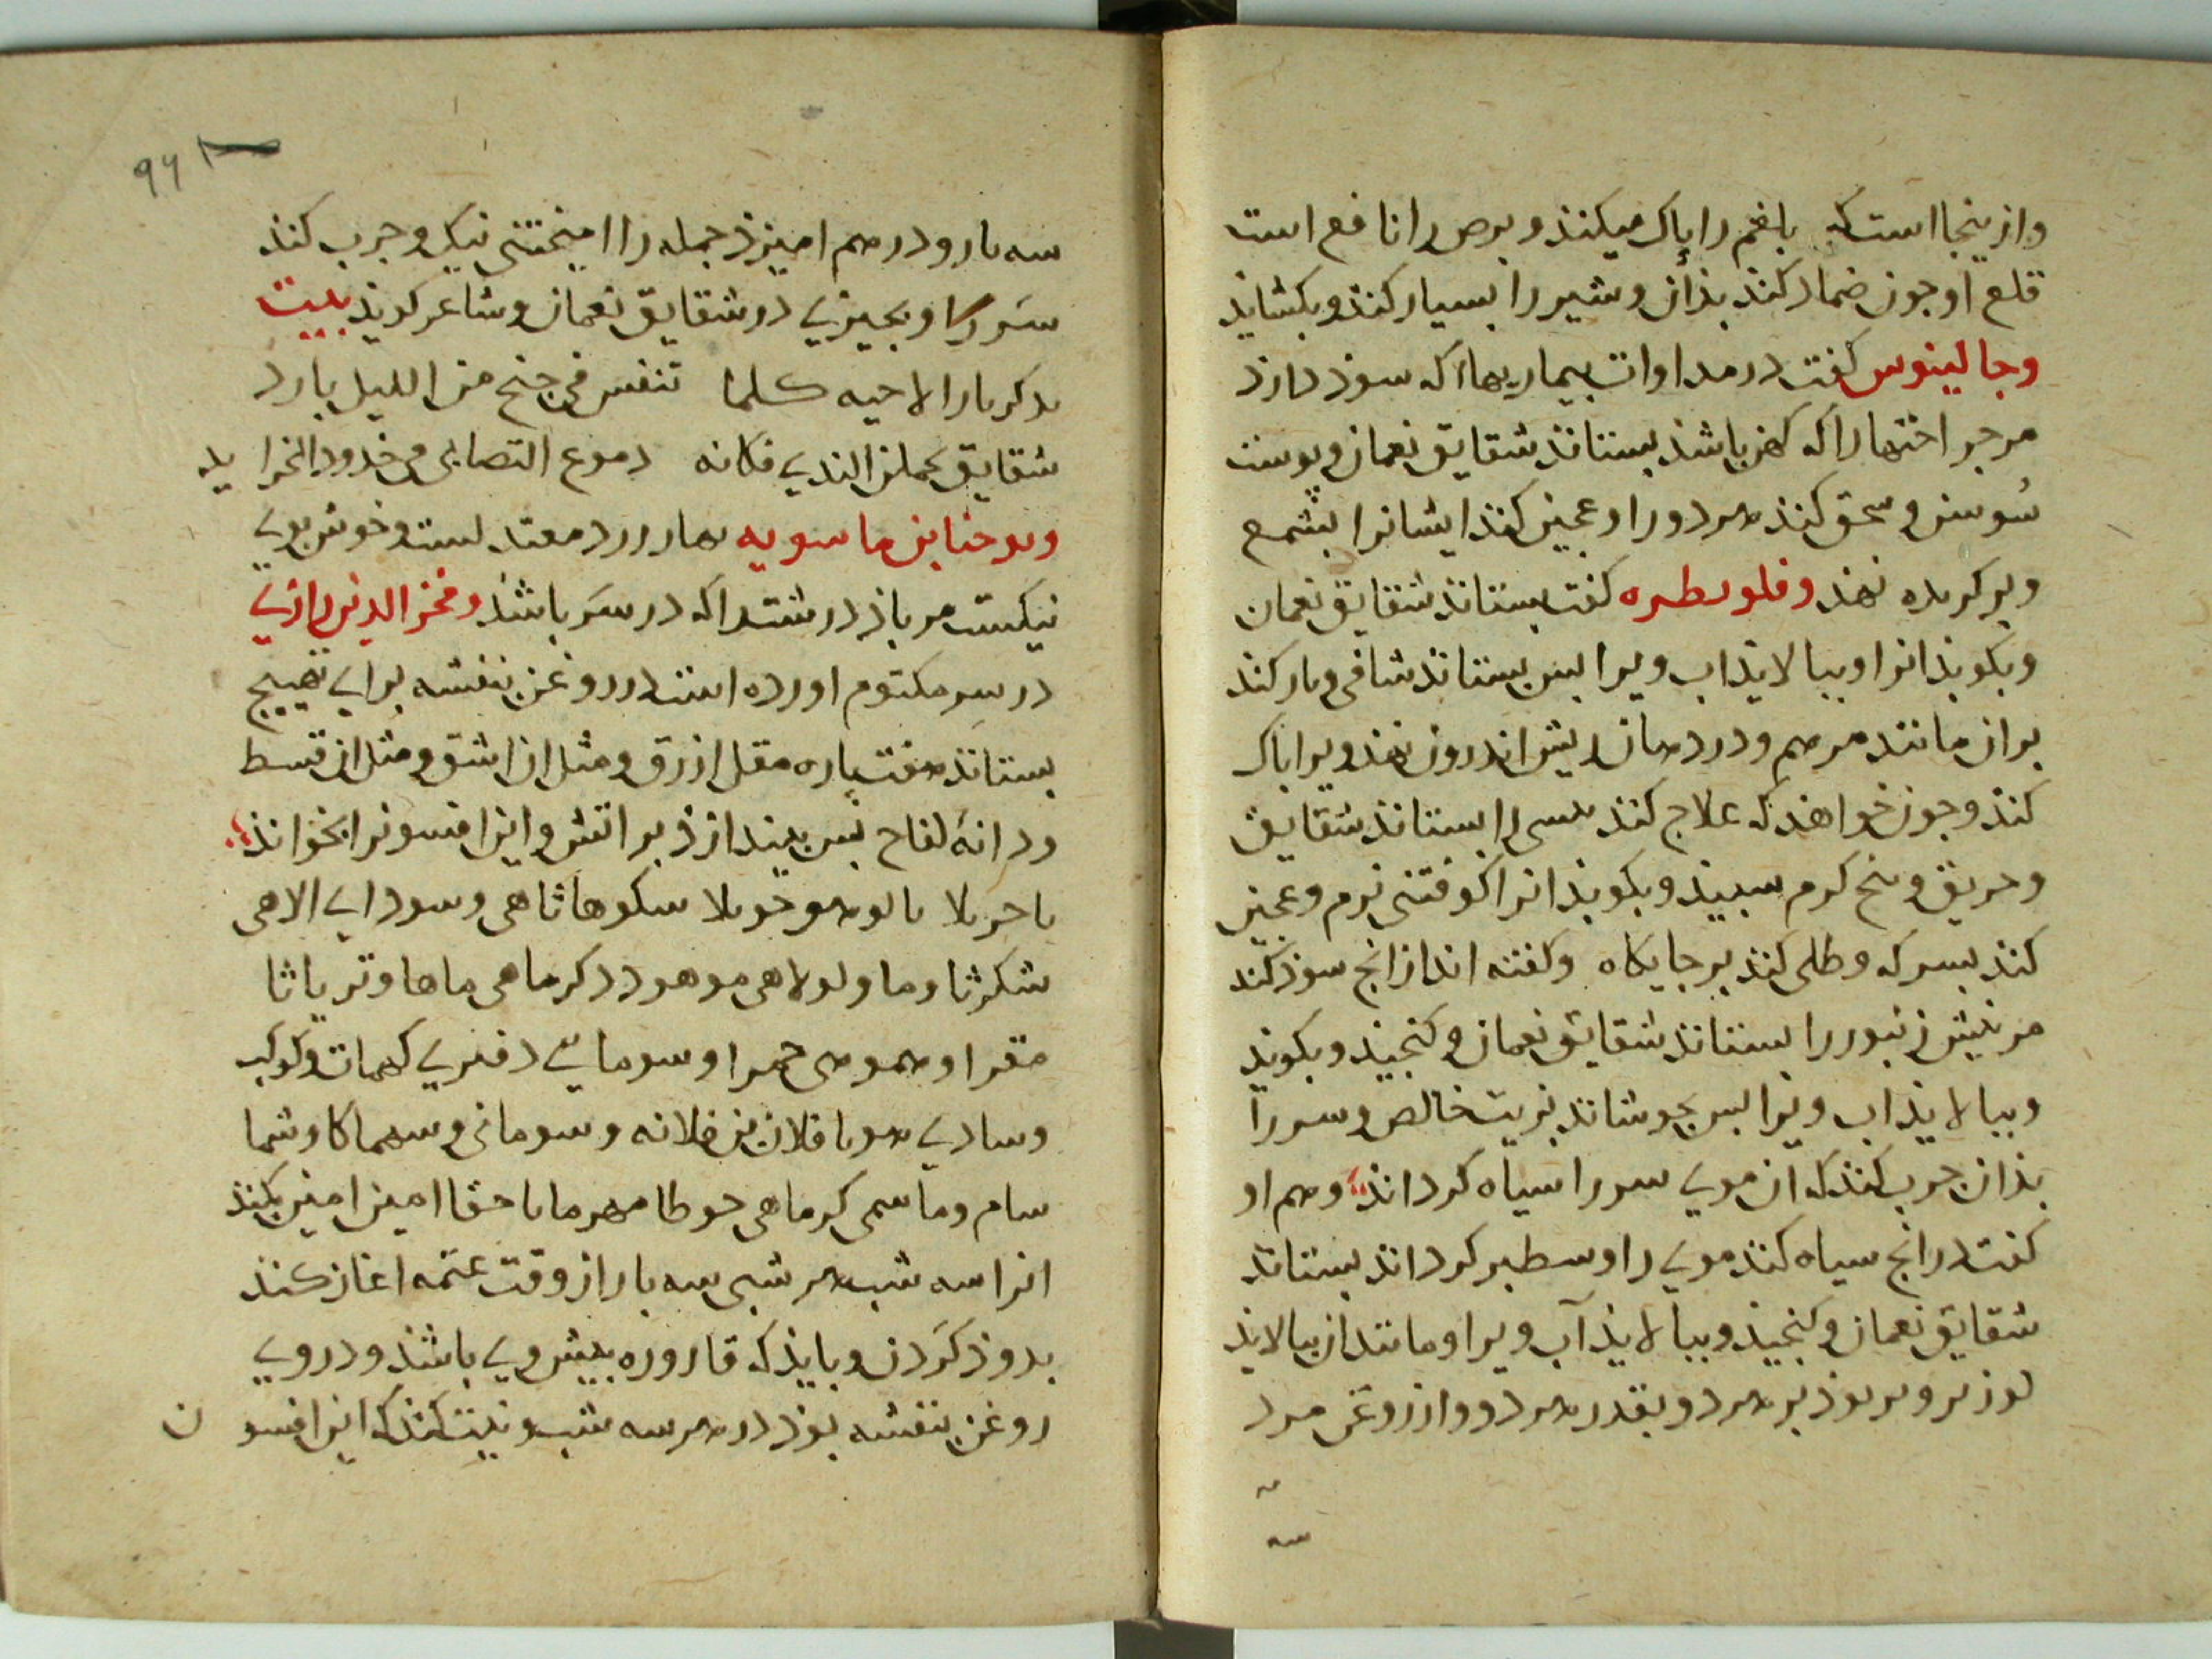 وازینجا است که بلغم را پاک میکنذ و برص را نافع است
قلع او جون ضماد کنند بذان و شیر را بسیار کنذ و بکشاید
وجالینوس کفت در مداوات بیماریها آکه سوذ دارذ
مر جراحتها را که کهن باشذ بستانذ شقایق نعمان و پوست
سُوسن و سحق کنذ هر دو را و عجین کنذ ایشانرا بشمع
وبر نهذ وفلوبطره کفت بستانذ شقایق نعمان
و بکوبذ انرا و ببالایذ اب ویرا بس بستانذ شافی و بار کند
بران مانند مرهم و در دهان ریش اندرون نهذ ویرا پاک
کنذ و جون خواهذ که علاج کنذ را بستانذ شقایق
و حریق و کرم سبیذ و بکوبذ انرا کوفتنی نرم و عجین
کنذ بسرکه و طلی کنذ بر جایکاه وکفته اند از انج سوذ کند
مر نیش زنبور را بستانذ شقایق نعمان و کنجیذ و بکوبذ
و ببالایذ اب ویرا بس بجوشانذ بزیت خالص و سر را
بذان جرب کنذ که ان موی سر را سیاه کرداند وهم او
کفت در انج سیاه کنذ موی را و سطبر کرداند بستانذ
شقایق نعمان و کنجیذ و ببالایذ آب ویرا و مانند ان ببالایذ
بر هر دو بقدر هر دو و از روغن مرد
سه بار و درهم امیزذ جمله را امیختنی نیک و جرب کنذ
سَر را و بجیزی در شقایق نعمان و شاعر کویذ بیت
کلما تنفس فی جنح من اللیل بارد
شقایق یحملن الندی فکانه دموع التصابی فی خدود الخراید
ویوحنا بن ماسویه بهار ورد معتدلست و خوش بوی
نیکست مر باذ درشت را که در سَر باشذ وفخر الدین رازی
در سِر مکتوم اورده است در روغن بنفشه برای تهییج
بستانذ هفت پاره مقل ازرق و مثل ان اشق و مثل ان قسط
و دانهٔ لفاح بس بیندازذ بر اتش و این افسونرا بخوانذ
سکوهاثاهی و سودای الاهی
شکرثا وما ولولاهی موهود دکرماهی ماها و تریاثا
حمرا وسومای دفنری کهمات وکوکب
وسادی هویا فلان بن فلانه وسومانی و سهماکا وشما
سام وماسمی کرماهی حوطا حقا امین امین بکنذ
انرا سه شب هر شبی سه بار از وقت عتمه اغاز کنذ
بدوذ کَردن و بایذ که قاروره بیش وی باشذ و در وی
روغن بنفشه بوذ در هر سه شب و نیت کنذ که این افسون